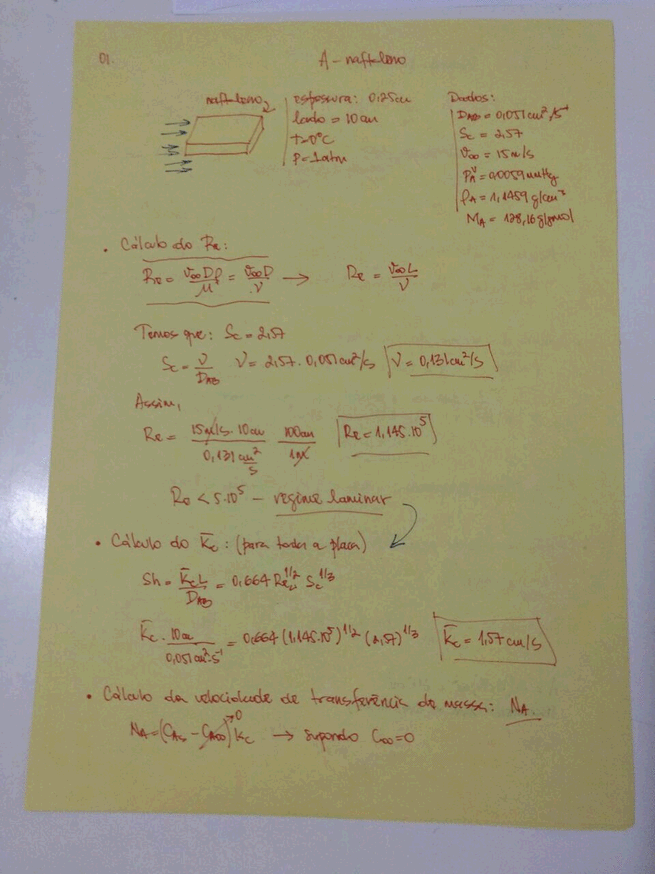 01.
A - naftaleno
naftaleno
espessura: 0,25cm
lado = 10cm
T=0°C
P=1atm
Dados:
D_AB = 0,051cm² s⁻¹
Sc = 2,57
v∞ = 15m/s
P_A^V = 0,0059mmHg
ρ_A = 1,1459 g/cm³
M_A = 128,16g/gmol
• Cálculo do Re:
Re = v∞Dρ/μ = v∞D/ν → Re = v∞L/ν
Temos que: Sc = 2,57
Sc = ν/D_AB ν = 2,57 . 0,051cm²/s ν = 0,131cm²/s
Assim,
Re = 15m/s . 10cm / 0,131 cm²/s 100cm/1m Re = 1,145.10⁵
Re < 5.10⁵ - regime laminar
• Cálculo do K̄c: (para toda a placa)
Sh = K̄c L/D_AB = 0,664 Re_L^1/2 Sc^1/3
K̄c . 10cm / 0,051cm².s⁻¹ = 0,664 (1,145.10⁵)^1/2 (2,57)^1/3 K̄c = 1,57 cm/s
• Cálculo da velocidade de transferência de massa: N_A
N_A = (C_As - C_A∞)→0 K̄c → supondo C∞=0